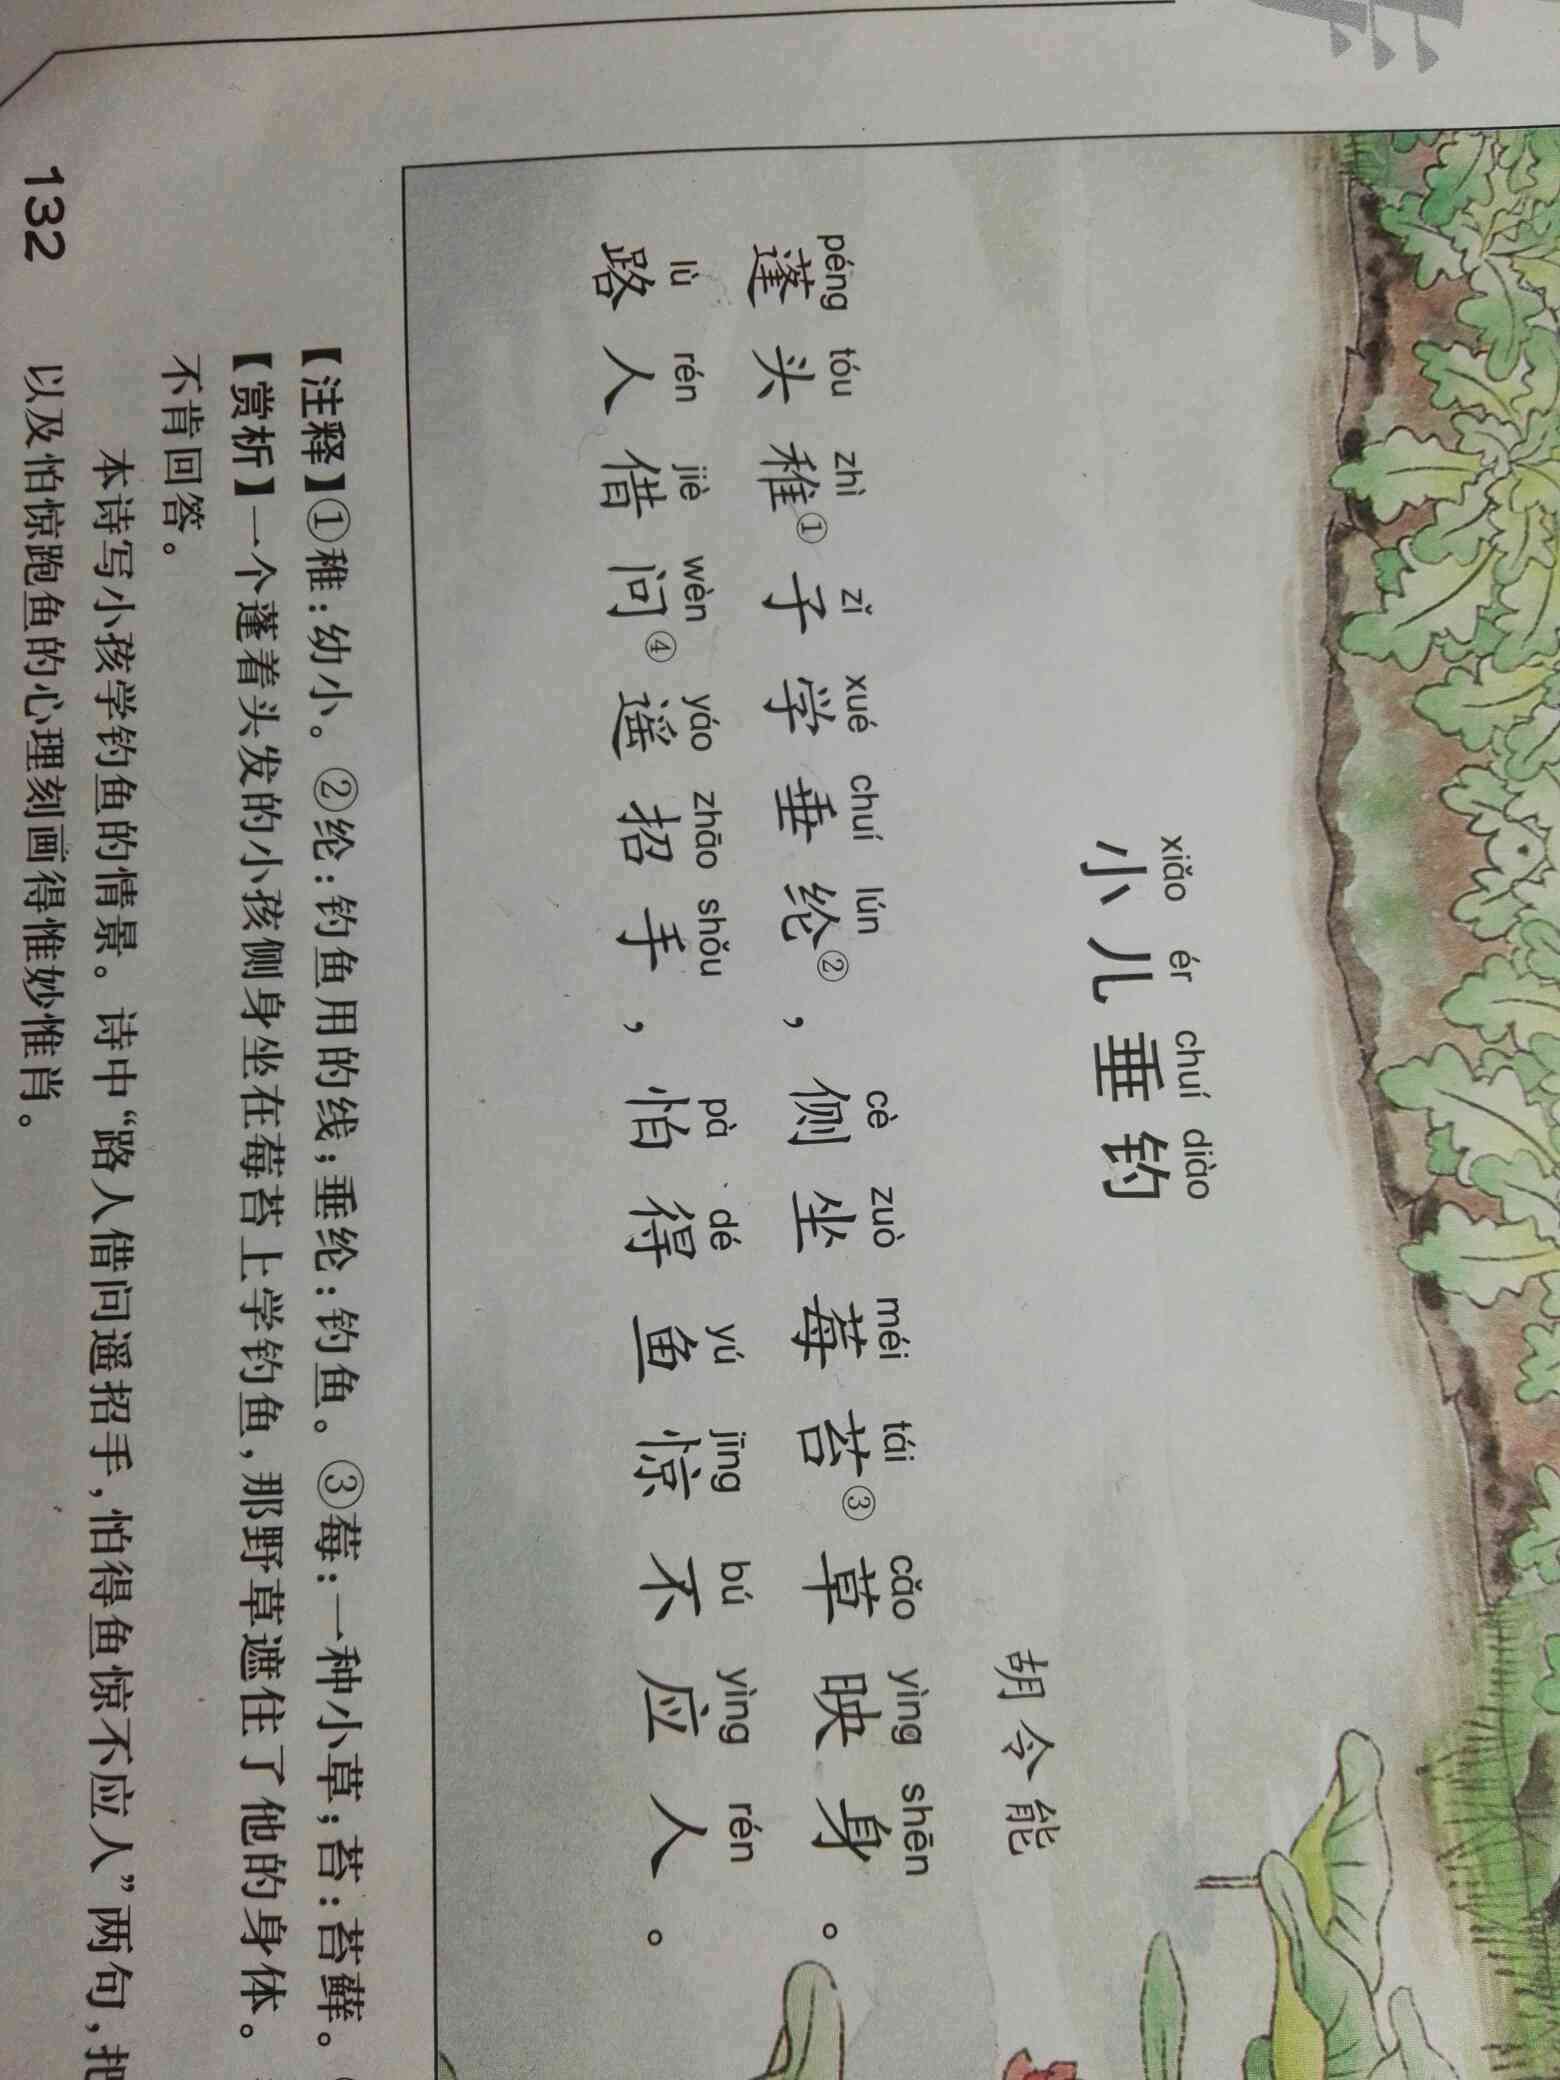 xiǎo ér chuí diào
小儿垂钓
胡令能
péng tóu zhì zǐ xué chuí lún cè zuò méi tái cǎo yìng shēn
蓬头稚①子学垂纶②，侧坐莓苔③草映身。
lù rén jiè wèn yáo zhāo shǒu pà dé yú jīng bú yìng rén
路人借问④遥招手，怕得鱼惊不应人。
【注释】①稚：幼小。②纶：钓鱼用的线；垂纶：钓鱼。③莓：一种小草；苔：苔藓。
【赏析】一个蓬着头发的小孩侧身坐在莓苔上学钓鱼，那野草遮住了他的身体。
不肯回答。
本诗写小孩学钓鱼的情景。诗中“路人借问遥招手，怕得鱼惊不应人”两句，把
以及怕惊跑鱼的心理刻画得惟妙惟肖。
132